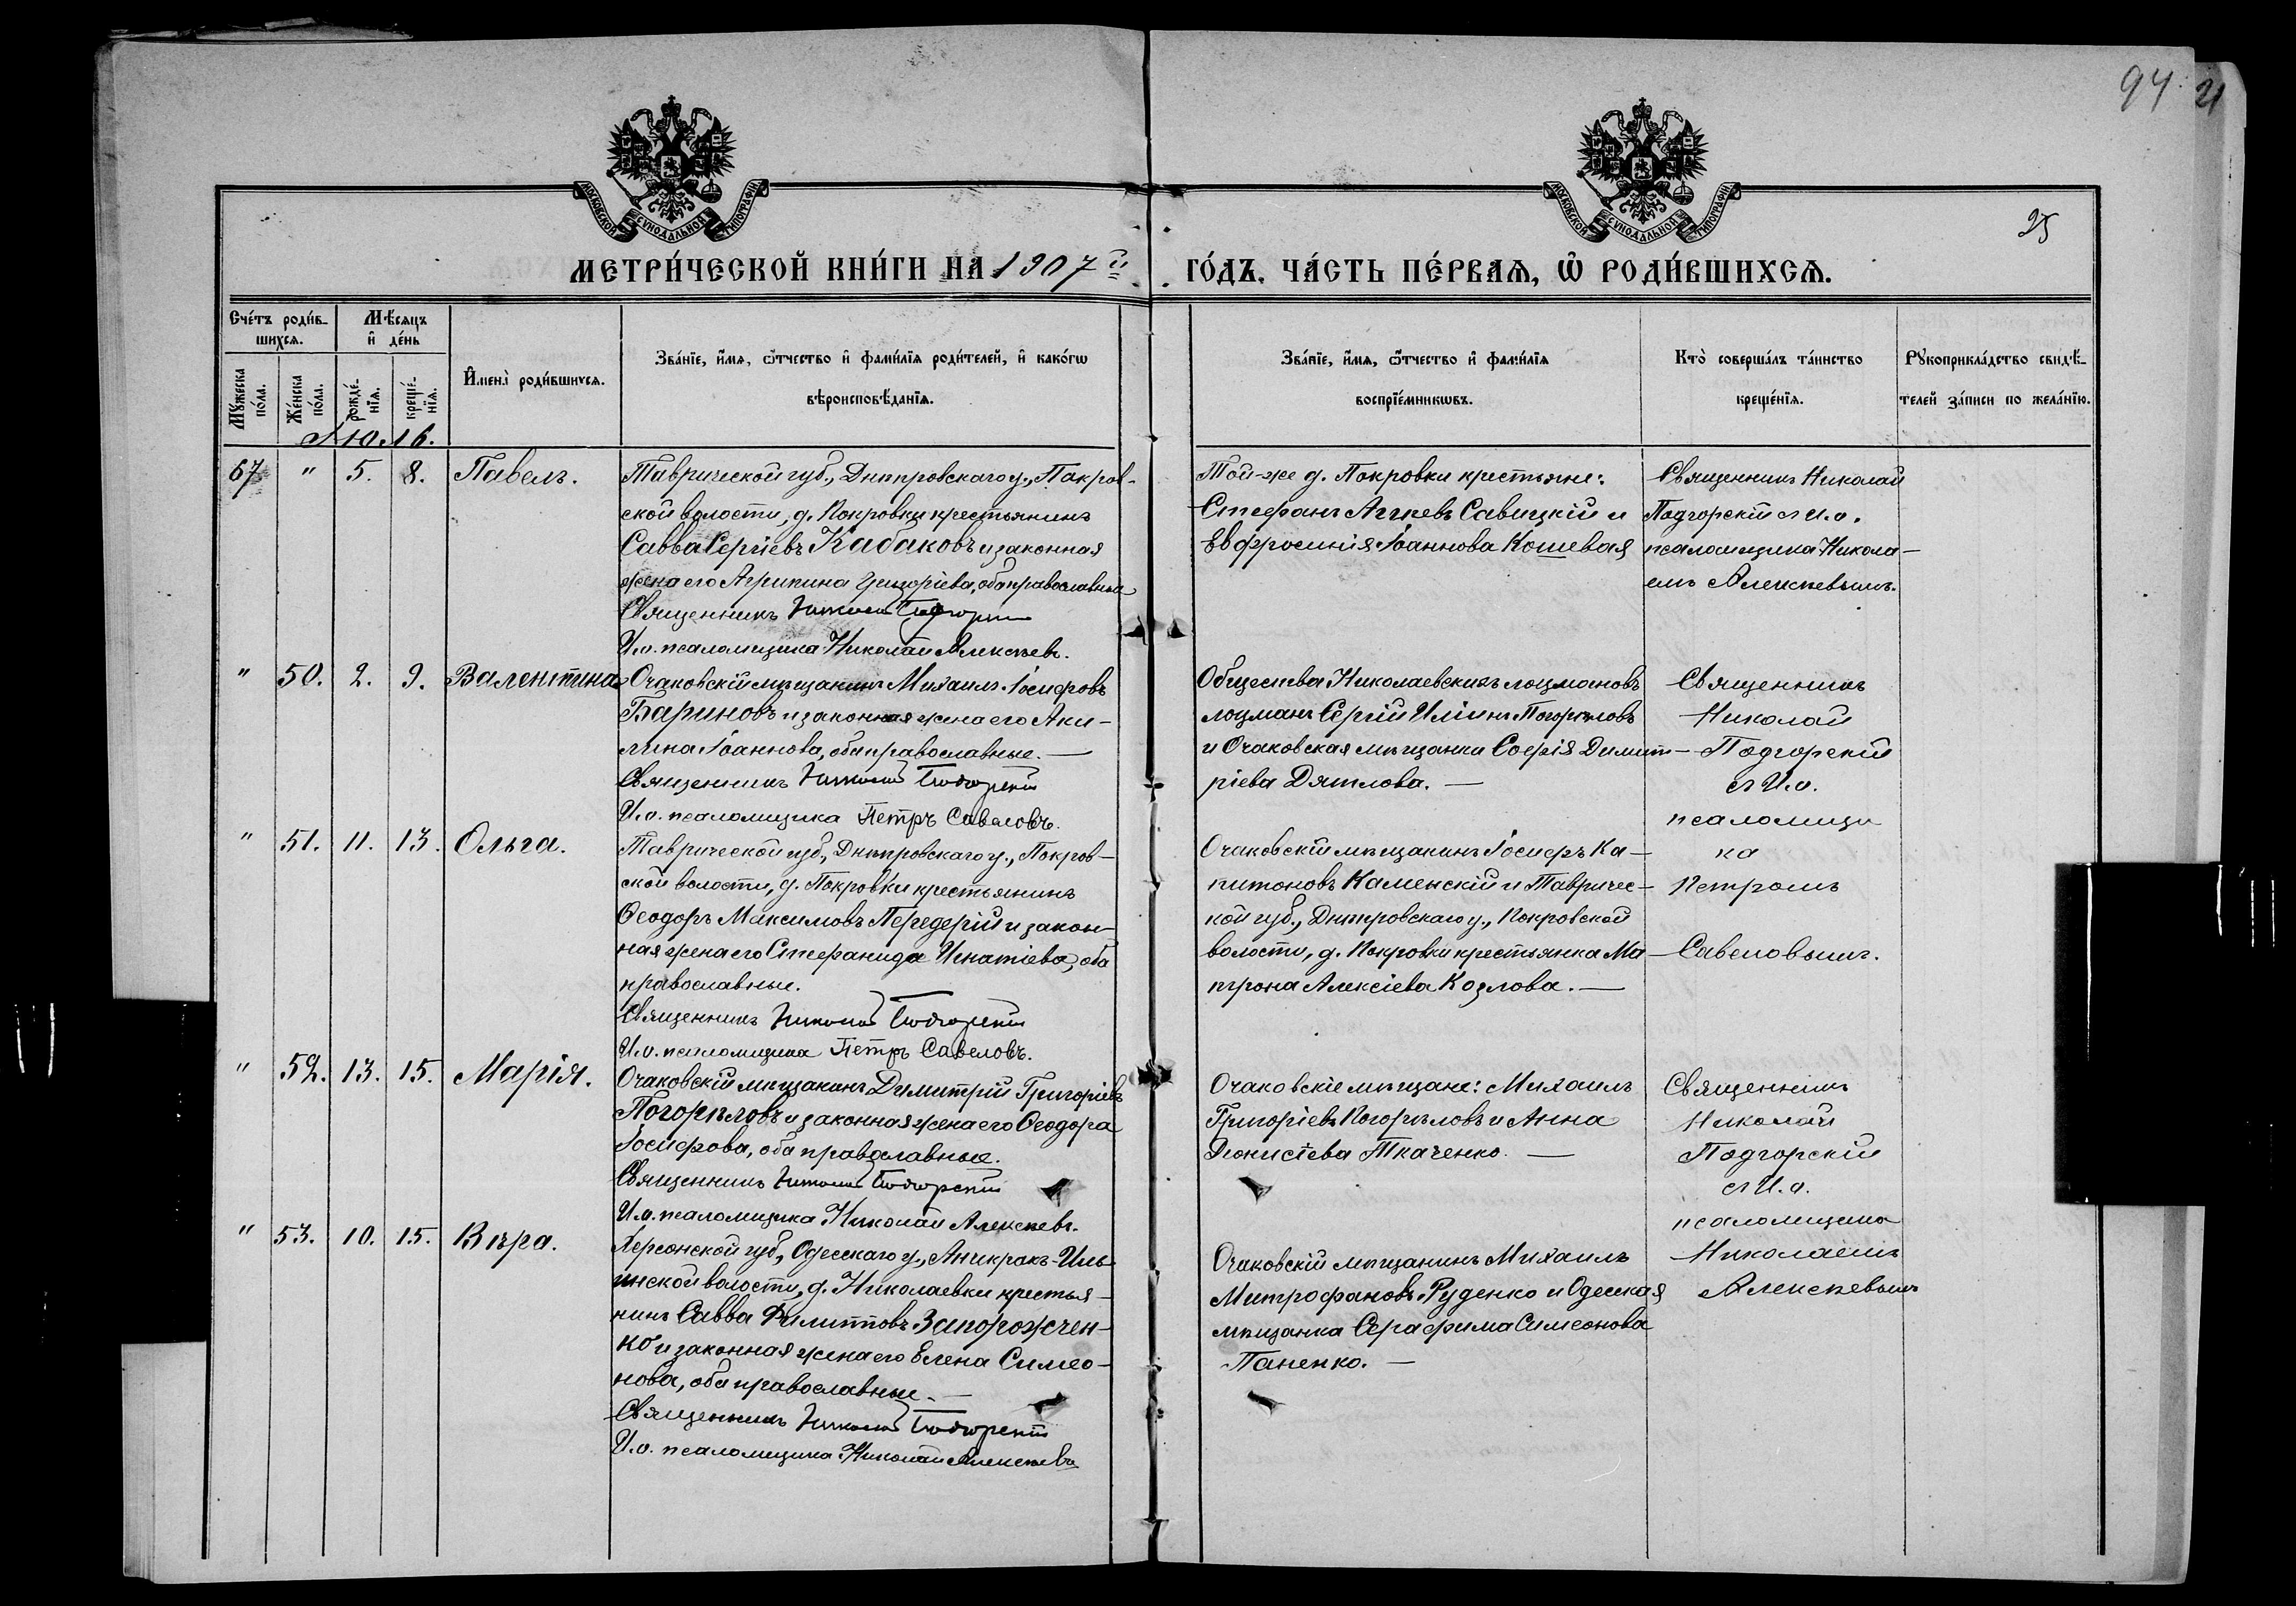 94
21
МОСКОВСКОЙ СѴНОДАЛЬНОЙ ТИПОГРАФІИ
МОСКОВСКОЙ СѴНОДАЛЬНОЙ ТИПОГРАФІИ
25
МЕТРИ́ЧЕСКОЙ КНИ́ГИ НА 1907й
ГО́ДЪ, ЧА́СТЬ ПЕ́РВАѦ, Ѡ҆ РОДИ́ВШИХСѦ.
Сче́тъ роди́в-
шихсѧ.
Мѣ́сѧцъ
и҆ де́нь
Мꙋ́жеска по́ла.
Же́нска по́ла.
рожде́-нїѧ.
креще́-нїѧ.
И҆мена̀ роди́вшихсѧ.
Зва́нїе, и҆́мѧ, ѻ҆́тчество и҆ фами́лїѧ роди́телей, и҆ како́гѡ
вѣроисповѣ́данїѧ.
Зва́нїе, и҆́мѧ, ѻ҆́тчество и҆ фами́лїѧ
воспрїе́мникѡвъ.
Кто̀ соверша́лъ та́инство
креще́нїѧ.
Рꙋкоприкла́дство свидѣ́-
телей за́писи по жела́нїю.
Іюль.
67 " 5. 8. Павелъ.
Таврической губ., Днѣпровскаго у., Покров-
ской волости, д. Покровки крестьянинъ
Савва Сергіевъ Кабаковъ и законная
жена его Агрипина Григоріева, оба православные
Священникъ Николай Подгорскій
И.о. псаломщика Николай Алексѣевъ.
Той-же д. Покровки крестьяне:
Стефанъ Савицкій и
Евфросинія Іоаннова Кошевая
Священникъ Николай
Подгорскій съ И.о.
псаломщика Никола-
емъ Алексѣевымъ.
" 50. 2. 9. Валентина
Очаковскій мѣщанинъ Михаилъ Іосифовъ
Бариновъ и законная жена его Аки-
лина Іоаннова, оба православные. —
Священникъ Николай Подгорскій
И.о. псаломщика Петръ Савеловъ.
Общества Николаевскихъ лоцмановъ
лоцманъ Сергій Ильинъ Погорѣловъ
и Очаковская мѣщанка Софія Димит-
ріева Дятлова. —
Священникъ
Николай
Подгорскій
съ И.о.
псаломщи
ка
Петромъ
Савеловымъ.
" 51. 11. 13. Ольга.
Таврической губ., Днѣпровскаго у., Покров-
ской волости, д. Покровки крестьянинъ
Ѳеодоръ Максимовъ Передерій и закон-
ная жена его Стефанида Игнатіева, оба
православные.
Священникъ Николай Подгорскій
И.о. псаломщика Петръ Савеловъ.
Очаковскій мѣщанинъ Іосифъ Ка-
питоновъ Каменскій и Тавричес-
кой губ., Днѣпровскаго у., Покровской
волости, д. Покровки крестьянка Ма-
трона Алексіева Козлова. —
" 52. 13. 15. Марія.
Очаковскій мѣщанинъ Димитрій Григоріевъ
Погорѣловъ и законная жена его Ѳеодора
Іосифова, оба православные.
Священникъ Николай Подгорскій
И.о. псаломщика Николай Алексѣевъ.
Очаковскіе мѣщане: Михаилъ
Григоріевъ Погорѣловъ и Анна
Діонисіева Ткаченко. —
Священникъ
Николай
Подгорскій
съ И.о.
псаломщика
Николаемъ
Алексѣевымъ
" 53. 10. 15. Вѣра.
Херсонской губ., Одесскаго у., Анчикракъ-Иль-
инской волости, д. Николаевки крестья-
нинъ Савва Филипповъ Запорожчен-
ко и законная жена его Елена Симео-
нова, оба православные. —
Священникъ Николай Подгорскій
И.о. псаломщика Николай Алексѣевъ
Очаковскій мѣщанинъ Михаилъ
Митрофановъ Руденко и Одесская
мѣщанка Серафима Симеонова
Паненко. —